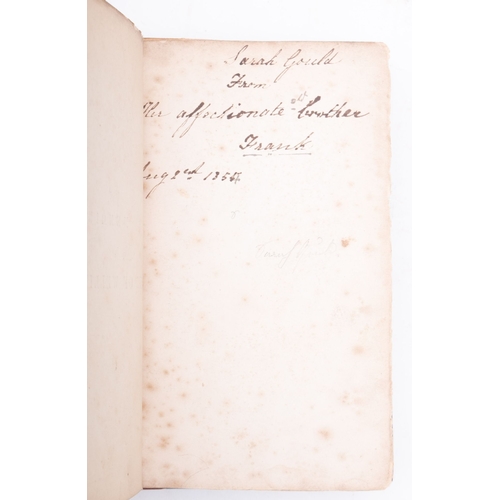 Sarah Gould
From
Her affectionate old brother
Frank
Aug 2nd